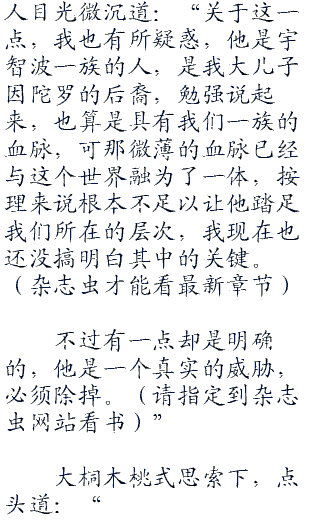 人目光微沉道：“关于这一
点，我也有所疑惑，他是宇
智波一族的人，是我大儿子
因陀罗的后裔，勉强说起
来，也算是具有我们一族的
血脉，可那微薄的血脉已经
与这个世界融为了一体，按
理来说根本不足以让他踏足
我们所在的层次，我现在也
还没搞明白其中的关键。
（杂志虫才能看最新章节）
不过有一点却是明确
的，他是一个真实的威胁，
必须除掉。（请指定到杂志
虫网站看书）”
大桐木桃式思索下，点
头道：“